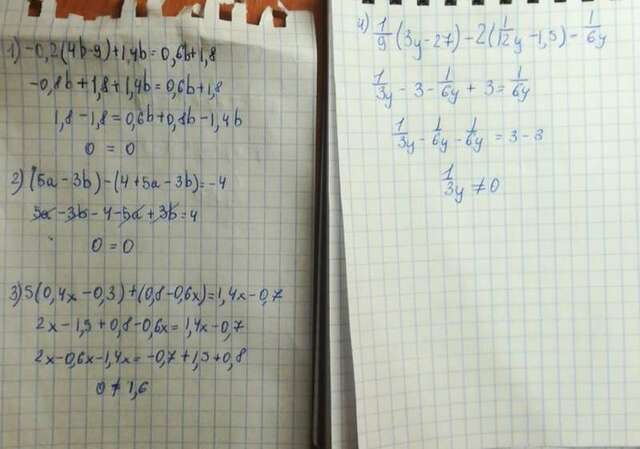 1) -0,2(4b-9)+1,4b=0,6b+1,8
-0,8b+1,8+1,4b=0,6b+1,8
1,8-1,8=0,6b+0,8b-1,4b
0 = 0
2) (5a-3b)-(4+5a-3b)=-4
5a-3b-4-5a+3b=4
0=0
3) 5(0,4x-0,3)+(0,8-0,6x)=1,4x-0,7
2x-1,5+0,8-0,6x=1,4x-0,7
2x-0,6x-1,4x=-0,7+1,5+0,8
0≠1,6
4) 1/9(3y-27)-2(1/12y-1,5)=1/6y
1/3y-3-1/6y+3=1/6y
1/3y-1/6y-1/6y=3-3
1/3y≠0